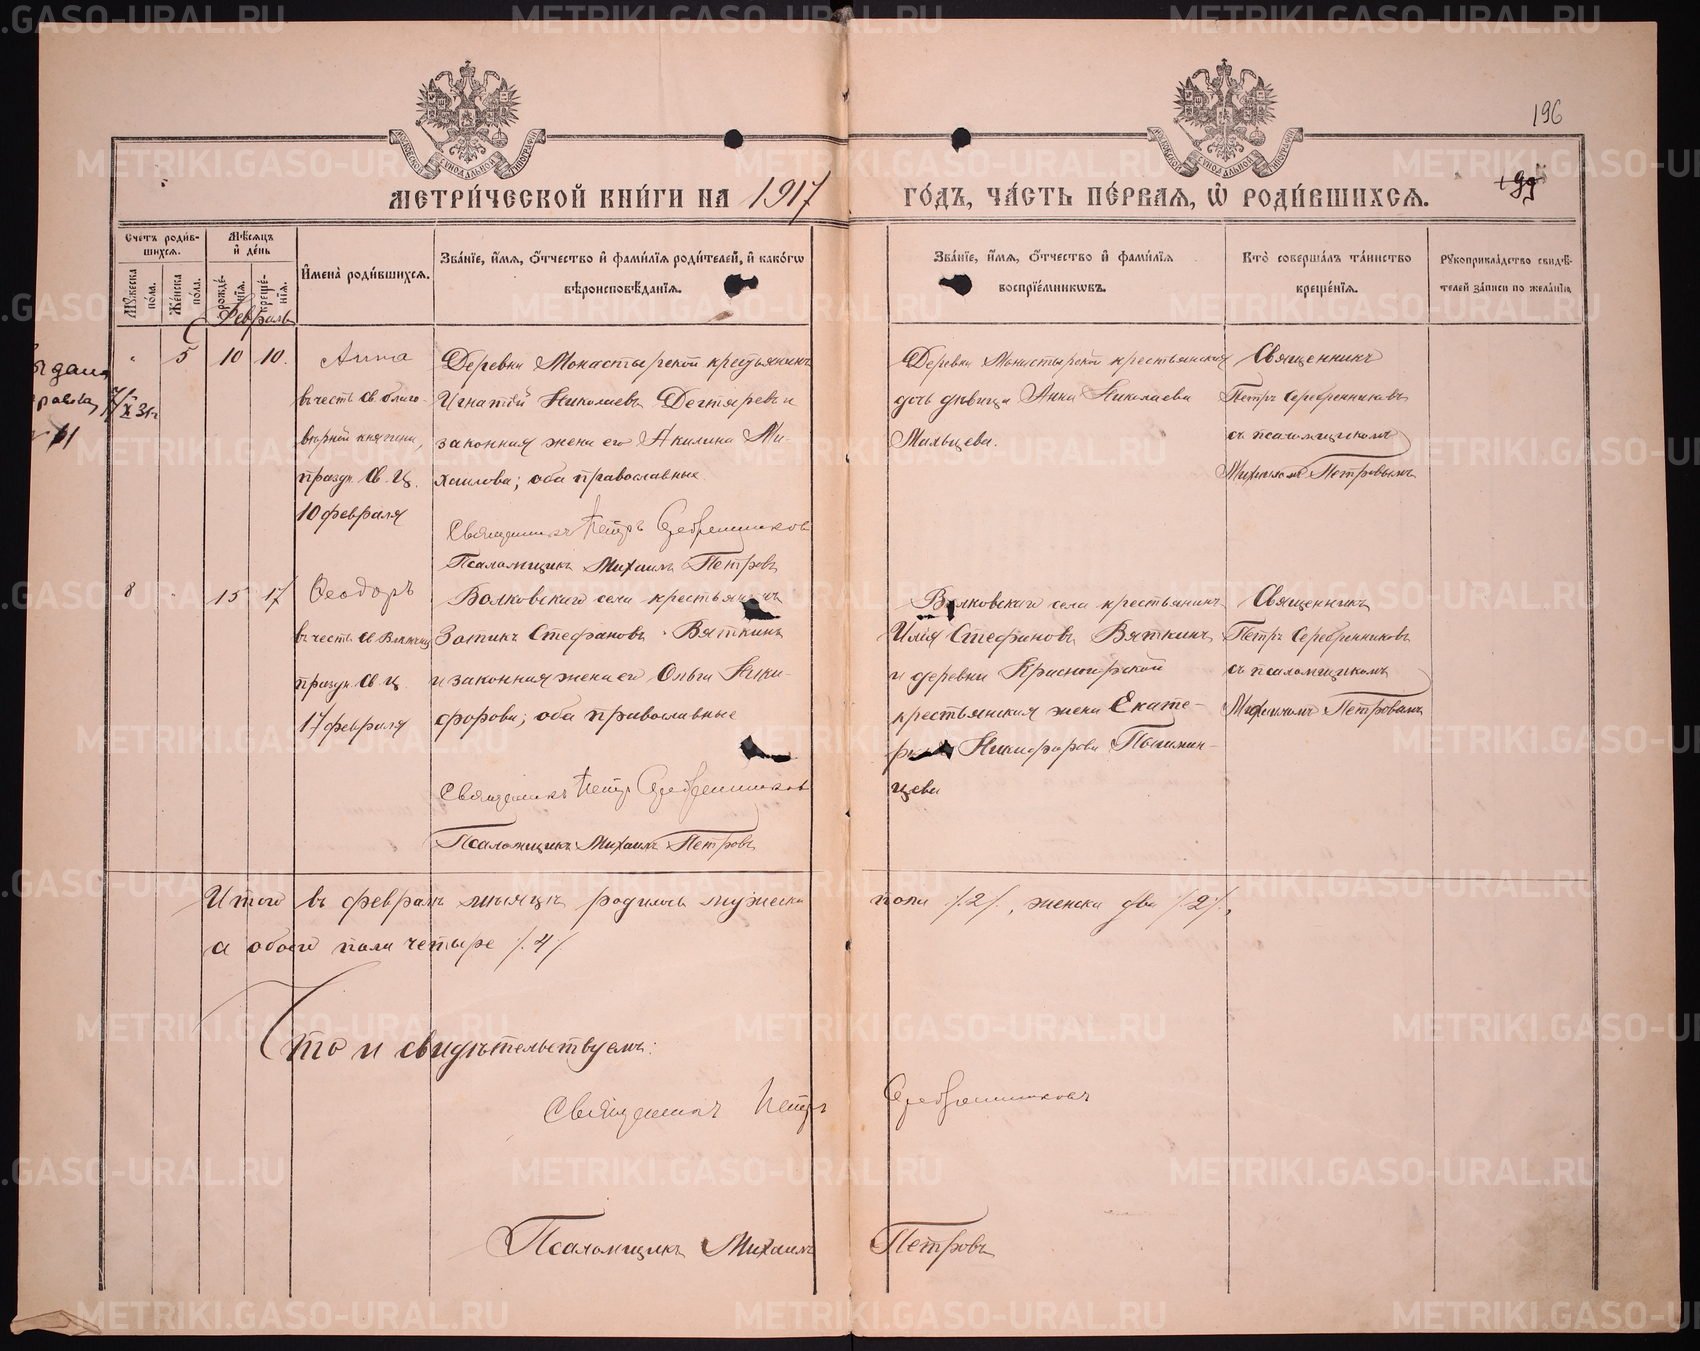 196
199
МЕТРИ́ЧЕСКОЙ КНИ́ГИ НА 1917 ГО́ДЪ, ЧА́СТЬ ПЕ́РВАЯ, Ѡ РОДИ́ВШИХСЯ.
Счетъ роди́в-
шихся.
Мѣ́сяцъ
и҆ де́нь
Мꙋ́жеска
по́ла.
Же́нска
по́ла.
рожде́-
нїя.
креще́-
нїя.
И҆мена̀ роди́вшихся.
Зва́нїе, и҆́мя, ѻ҆́тчество и҆ фамилїя роди́телей, и҆ како́гѡ
вѣроисповѣ́данїя.
Зва́нїе, и҆́мя, ѻ҆́тчество и҆ фами́лїя
воспрїе́мникѡвъ.
Кто̀ соверша́лъ та́инство
креще́нїя.
Рꙋкоприкла́дство свидѣ́-
телей за́писи по жела́нїю.
Февраль
5 10 10.
Анна
въ честь Св. благо-
вѣрной княгини,
праздн. Св. Ц.
10 февраля
Деревни Монастырской крестьянинъ
Игнатій Николаевъ Дегтяревъ и
законная жена его Акилина Ми-
хаилова; оба православные.
Священникъ Петръ Серебренников
Псаломщикъ Михаилъ Петровъ
Деревни Монастырской крестьянская
дочь дѣвица Анна Николаева
Мальцева.
Священникъ
Петръ Серебренниковъ
съ псаломщикомъ
Михаиломъ Петровымъ
8 15 17
Ѳеодоръ
въ честь Св.
праздн. Св. Ц.
17 февраля
Волковскаго села крестьянинъ
Зотикъ Стефановъ Вяткинъ
и законная жена его Ольга Ники-
форова; оба православные
Священникъ Петръ Серебренников
Псаломщикъ Михаилъ Петровъ
Волковскаго села крестьянинъ
Илія Стефановъ Вяткинъ
и деревни Красногорской
крестьянская жена Екате-
Никифорова
цева
Священникъ
Петръ Серебренниковъ
съ псаломщикомъ
Михаиломъ Петровымъ
Итого въ февралѣ мѣсяцѣ родилось мужеска пола /.2/., женска два /.2/.,
а обоего пола четыре /.4/.
Что и свидѣтельствуемъ:
Священникъ Петръ Серебренниковъ
Псаломщикъ Михаилъ Петровъ
METRIKI.GASO-URAL.RU